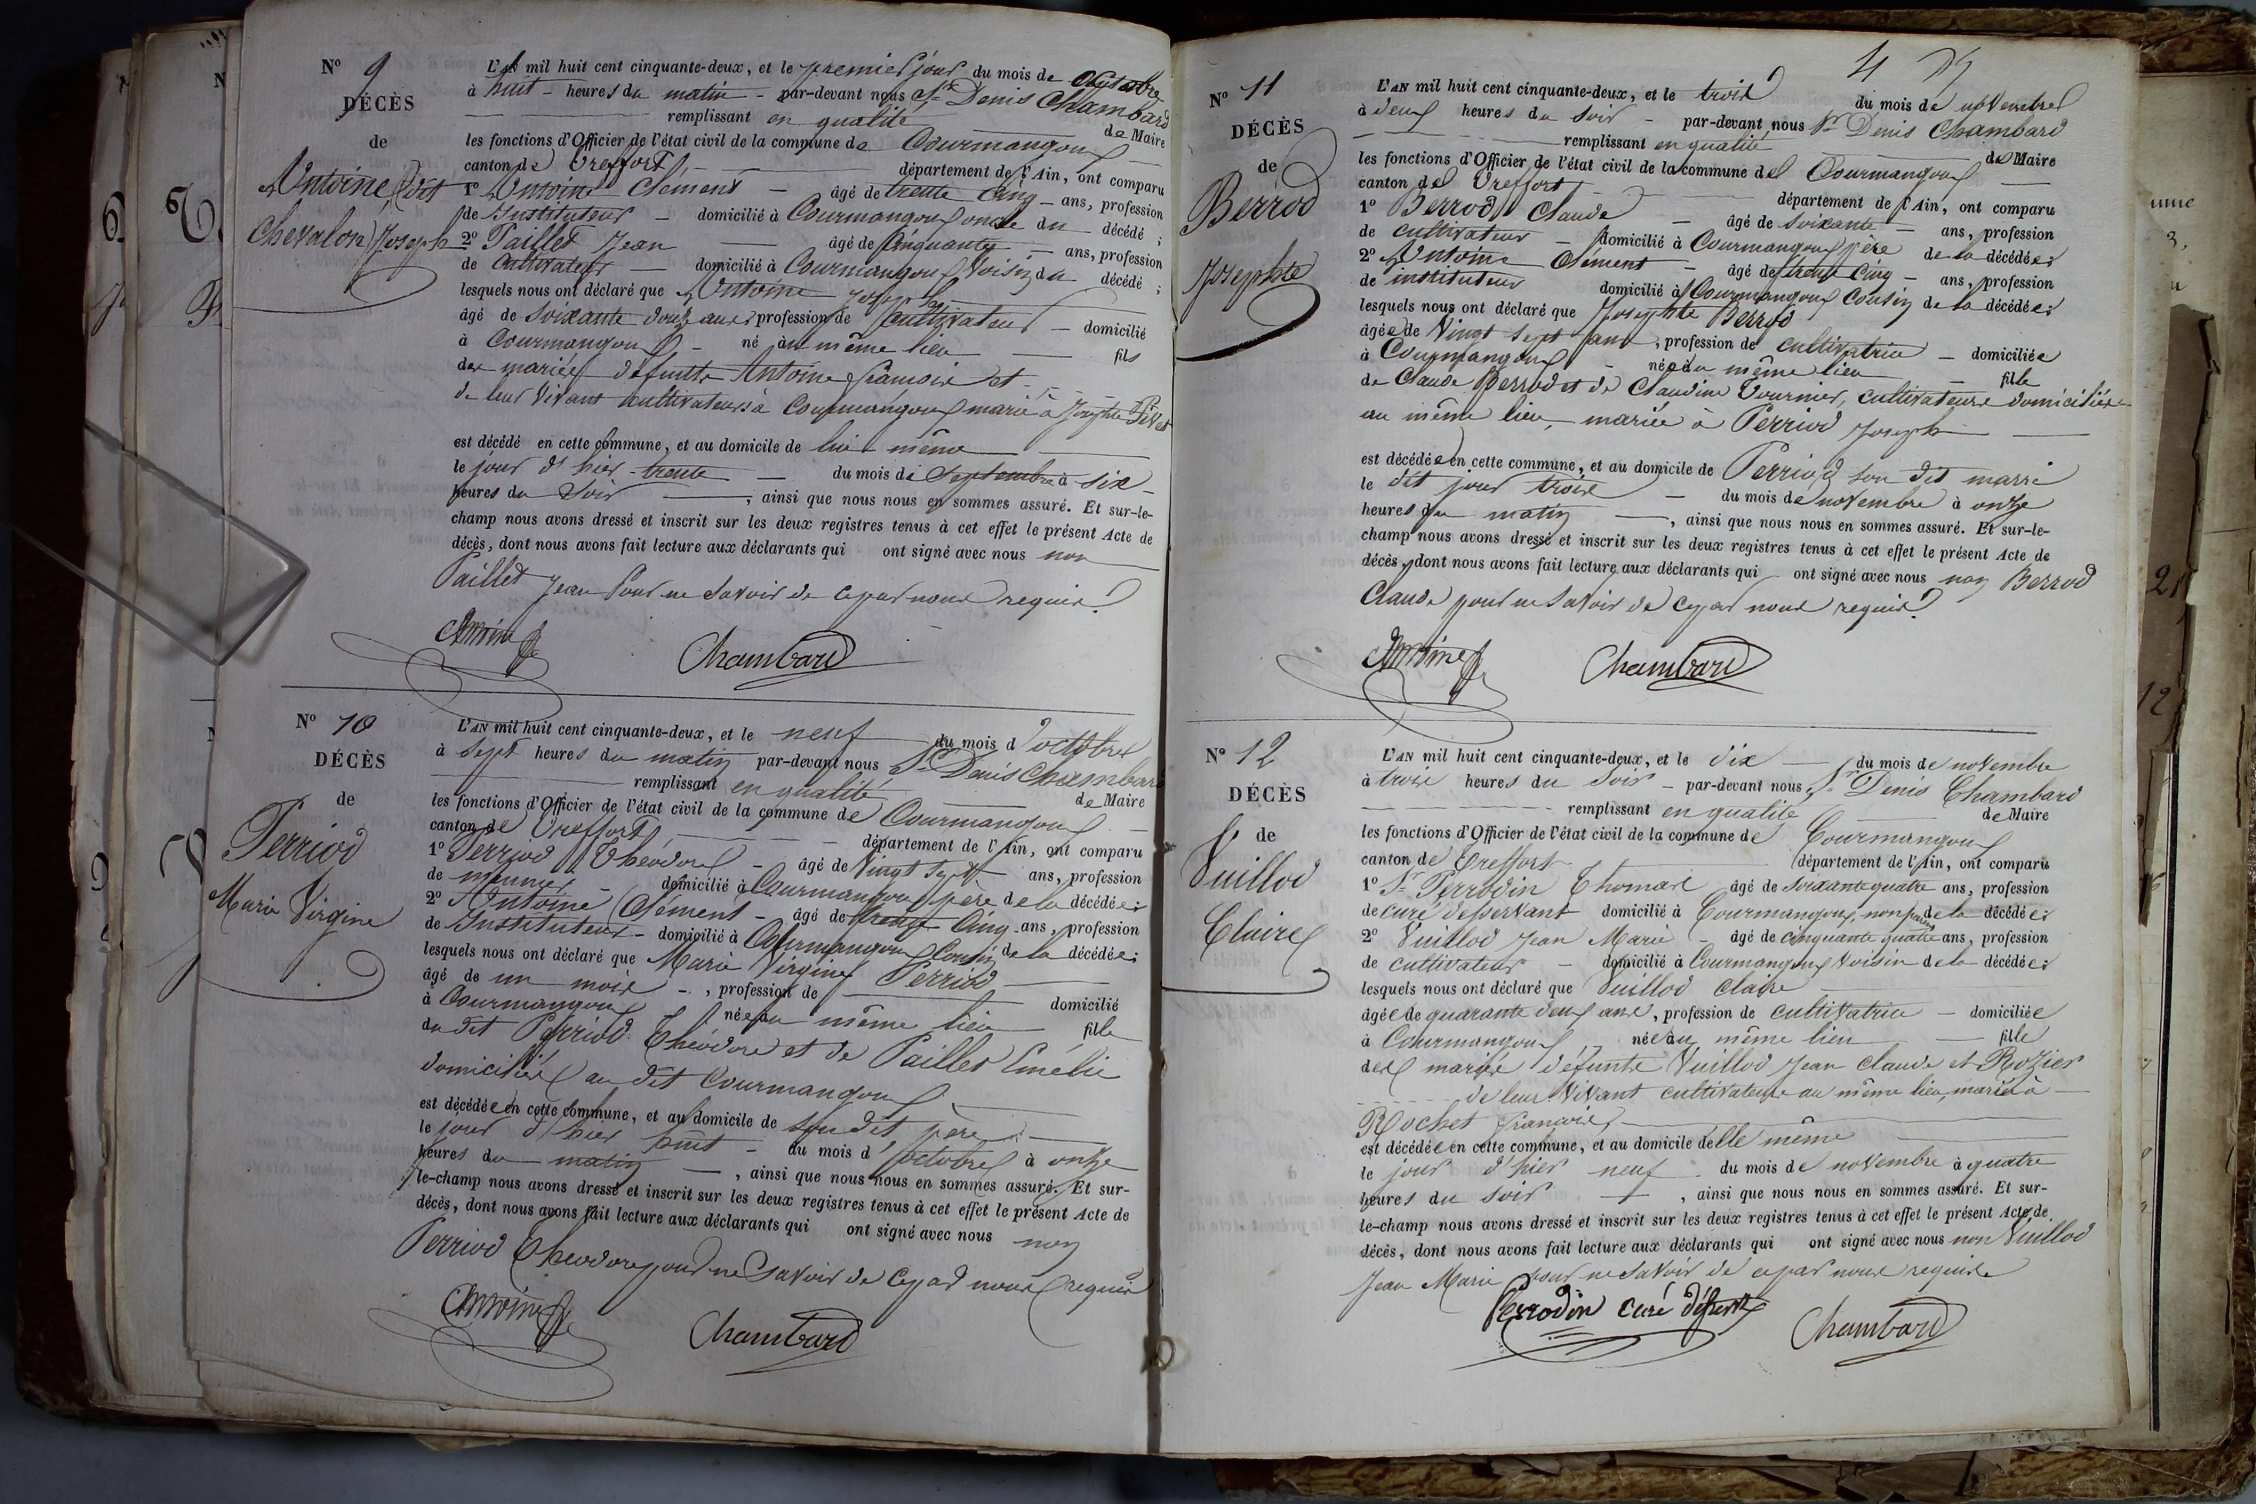 N° 9
DÉCÈS
de
Antoine, (dit
Chevalon) Joseph
L'AN mil huit cent cinquante-deux, et le premier jour du mois de octobre
à huit heures du matin par-devant nous Sr Denis Chambard
remplissant en qualité de Maire
les fonctions d'Officier de l'état civil de la commune de Courmangoux
canton de Treffort département de l'Ain, ont comparu
1° Antoine Clément âgé de trente cinq ans, profession
de Instituteur domicilié à Courmangoux oncle du décédé ;
2° Paillet Jean âgé de cinquante ans, profession
de cultivateur domicilié à Courmangoux voisin du décédé ;
lesquels nous ont déclaré que Antoine Joseph
âgé de soixante douze ans profession de cultivateur domicilié
à Courmangoux né au même lieu fils
des mariés défunts Antoine françois et
de leur vivant cultivateurs à Courmangoux marié à Josephte
est décédé en cette commune, et au domicile de lui même
le jour d'hier trente du mois de septembre à six
heures du soir, ainsi que nous nous en sommes assuré. Et sur-le-
champ nous avons dressé et inscrit sur les deux registres tenus à cet effet le présent Acte de
décès, dont nous avons fait lecture aux déclarants qui ont signé avec nous non
Paillet Jean Pour ne savoir de ce par nous requis.
Antoine
Chambard
N° 10
DÉCÈS
de
Perriod
Marie Virgine
L'AN mil huit cent cinquante-deux, et le neuf du mois d'octobre
à sept heures du matin par-devant nous Sr Denis Chambard
remplissant en qualité de Maire
les fonctions d'Officier de l'état civil de la commune de Courmangoux
canton de Treffort département de l'Ain, ont comparu
1° Perriod Théodore âgé de vingt sept ans, profession
de meunier domicilié à Courmangoux père de la décédée ;
2° Antoine Clément âgé de trente cinq ans, profession
de Instituteur domicilié à Courmangoux cousin de la décédée ;
lesquels nous ont déclaré que Marie Virgine Perriod
âgé de un mois, profession de domicilié
à Courmangoux née au même lieu fille
du dit Perriod Théodore et de Paillet Emélie
domiciliés au dit Courmangoux
est décédée en cette commune, et au domicile de son dit père
le jour d'hier huit du mois d'octobre à onze
heures du matin, ainsi que nous nous en sommes assuré. Et sur-
le-champ nous avons dressé et inscrit sur les deux registres tenus à cet effet le présent Acte de
décès, dont nous avons fait lecture aux déclarants qui ont signé avec nous non
Perriod Théodore pour ne savoir de ce par nous requis
Antoine
Chambard
4
N° 11
DÉCÈS
de
Berrod
Josephte
L'AN mil huit cent cinquante-deux, et le trois du mois de novembre
à deux heures du soir par-devant nous Sr Denis Chambard
remplissant en qualité de Maire
les fonctions d'Officier de l'état civil de la commune de Courmangoux
canton de Treffort département de l'Ain, ont comparu
1° Berrod Claude âgé de soixante ans, profession
de cultivateur domicilié à Courmangoux père de la décédée ;
2° Antoine Clément âgé de trente cinq ans, profession
de instituteur domicilié à Courmangoux cousin de la décédée ;
lesquels nous ont déclaré que Josephte Berrod
âgée de vingt sept ans, profession de cultivatrice domiciliée
à Courmangoux née au même lieu fille
de Claude Berrod et de Claudine Tournier, cultivateurs domiciliés
au même lieu, mariée à Perriod Joseph
est décédée en cette commune, et au domicile de Perriod son dit marri
le dit jour trois du mois de novembre à onze
heures du matin, ainsi que nous nous en sommes assuré. Et sur-le-
champ nous avons dressé et inscrit sur les deux registres tenus à cet effet le présent Acte de
décès, dont nous avons fait lecture aux déclarants qui ont signé avec nous non Berrod
Claude pour ne savoir de ce par nous requis.
Antoine
Chambard
N° 12
DÉCÈS
de
Vuillod
Claire
L'AN mil huit cent cinquante-deux, et le dix du mois de novembre
à trois heures du soir par-devant nous Sr Denis Chambard
remplissant en qualité de Maire
les fonctions d'Officier de l'état civil de la commune de Courmangoux
canton de Treffort département de l'Ain, ont comparu
1° Sr Perrodin Thomas âgé de soixante quatre ans, profession
de curé desservant domicilié à Courmangoux, non parent de la décédée ;
2° Vuillod Jean Marie âgé de cinquante quatre ans, profession
de cultivateur domicilié à Courmangoux voisin de la décédée ;
lesquels nous ont déclaré que Vuillod Claire
âgée de quarante deux ans, profession de cultivatrice domiciliée
à Courmangoux née au même lieu fille
des mariés défunts Vuillod Jean Claude et Rozier
de leur vivant cultivateurs au même lieu, mariée à
Rochet françois
est décédée en cette commune, et au domicile delle même
le jour d'hier neuf du mois de novembre à quatre
heures du soir, ainsi que nous nous en sommes assuré. Et sur-
le-champ nous avons dressé et inscrit sur les deux registres tenus à cet effet le présent Acte de
décès, dont nous avons fait lecture aux déclarants qui ont signé avec nous non Vuillod
Jean Marie pour ne savoir de ce par nous requis
Perrodin curé
Chambard